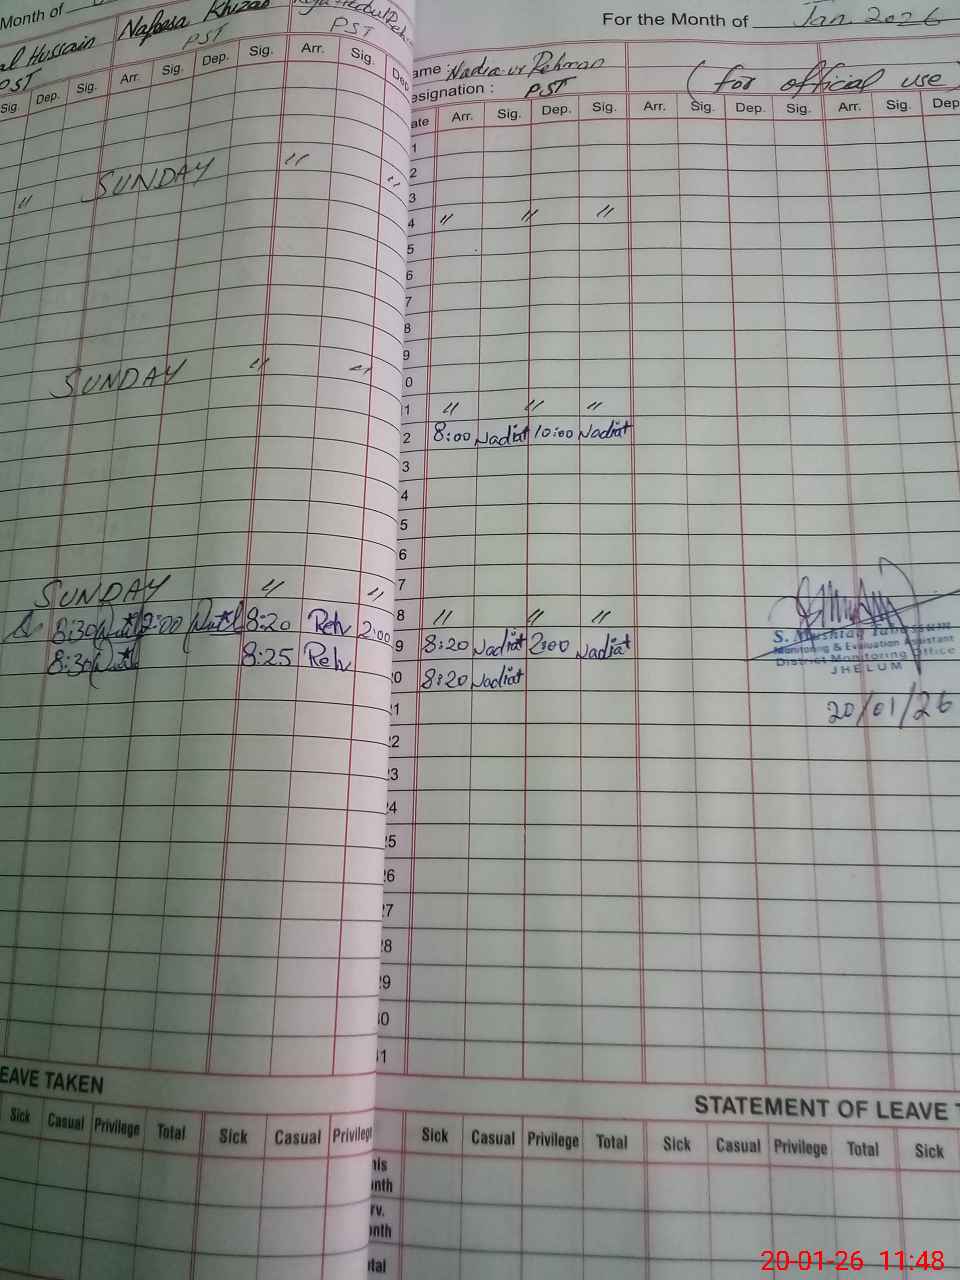 Month of
al Hussain Nafeesa Khizar
PST PST PST
Sig. Dep. Sig. Arr. Sig. Dep. Sig. Arr. Sig. Dep
SUNDAY " "
"
SUNDAY " "
SUNDAY " "
8:30 2:00 8:20 Reh 2:00
8:30 8:25 Reh
EAVE TAKEN
Sick Casual Privilege Total Sick Casual Privilege
For the Month of Jan. 2026
ame : Nadia ur Rehman (for official use)
esignation : PST
ate Arr. Sig. Dep. Sig. Arr. Sig. Dep. Sig. Arr. Sig. Dep
1
2
3
4 " " "
5
6
7
8
9
0
1 " " "
2 8:00 Nadiat 10:00 Nadiat
3
4
5
6
7
8 " " "
9 8:20 Nadiat 2:00 Nadiat
0 8:20 Nadiat
S. Mushtaq
Monitoring & Evaluation Assistant
District Monitoring Office
JHELUM
20/01/26
21
22
23
24
25
26
27
28
29
30
31
STATEMENT OF LEAVE T
Sick Casual Privilege Total Sick Casual Privilege Total Sick
his
onth
rv.
onth
otal
20-01-26 11:48